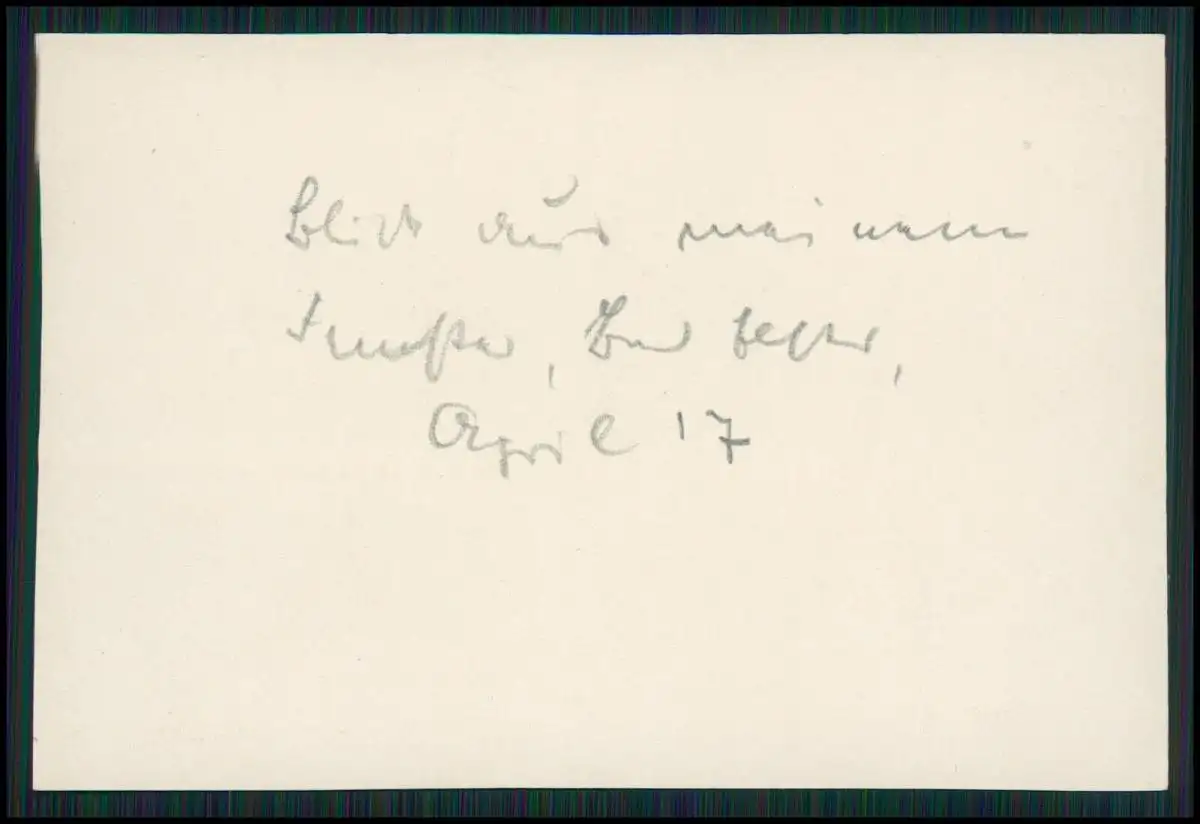 Blick aus meinem
Fenster,
April 17